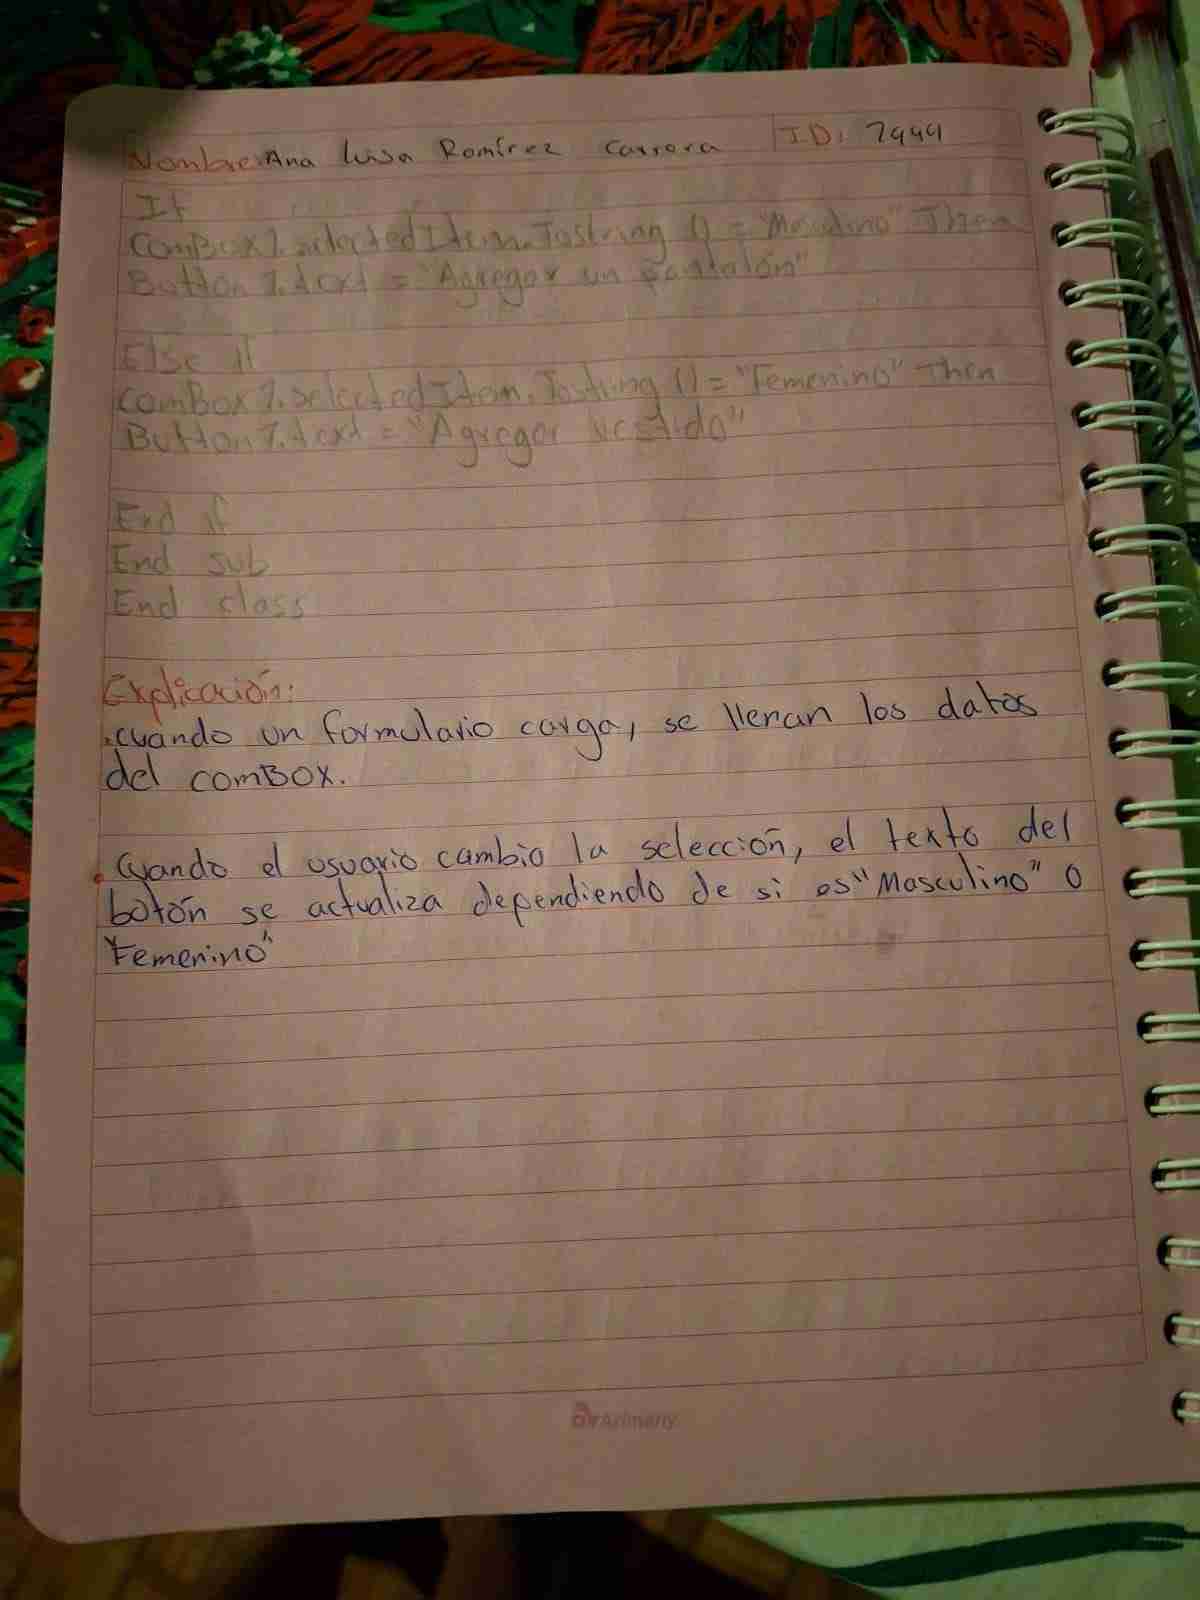 Nombre: Ana Luisa Ramírez Carrera ID: 7444
If
ComBox1.selectedItem.Tostring () = "Masculino" Then
Button1.text = "Agregar un pantalón"
Else if
comBox1.selectedItem.Tostring () = "Femenino" Then
Button1.text = "Agregar vestido"
End if
End sub
End class
Explicación:
.cuando un formulario carga, se llenan los datos
del comBOX.
.Cuando el usuario cambio la selección, el texto del
botón se actualiza dependiendo de si es "Masculino" O
"Femenino"
Arimany